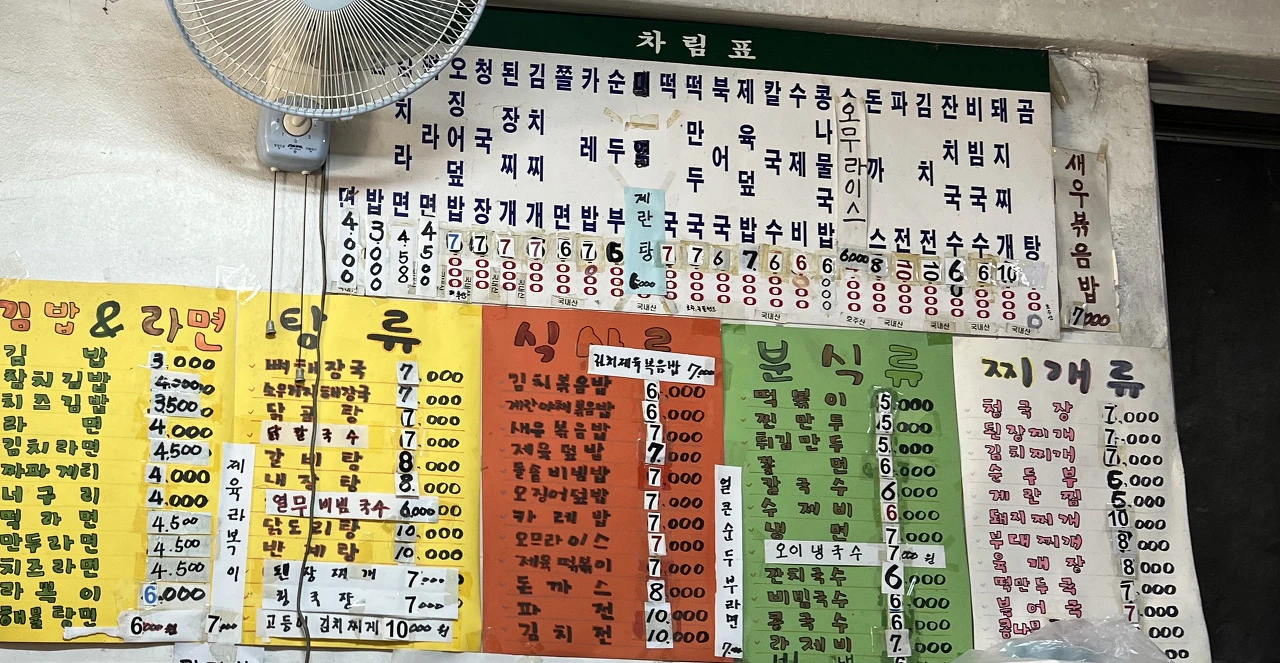 차림표
라면 4000
김밥 3000
치라면 4500
라면 4500
오징어덮밥 7000
청국장 7000
된장찌개 7000
김치찌개 7000
쫄면 6000
카레밥 7000
순두부 6000
계란탕 6000
떡국 7000
떡만두국 7000
북어국 6000
제육덮밥 7000
칼국수 6000
수제비 6000
콩나물국밥 6000
오무라이스 6000
돈까스 8000
파전 10000
김치전 10000
잔치국수 6000
비빔국수 6000
돼지찌개 10000
곰탕
새우볶음밥 7000
김밥 & 라면
김밥 3.000
참치김밥 4.000
치즈김밥 3.500
라면 4.000
김치라면 4.500
짜파게티 4.000
너구리 4.000
떡라면 4.500
만두라면 4.500
치즈라면 4.500
라뽁이 6.000
해물탕면 6000원
제육라복이 7000
탕류
뼈해장국 7.000
소우거지해장국 7.000
닭곰탕 7.000
닭칼국수 7.000
갈비탕 8.000
내장탕 8.000
열무비빔국수 6.000
닭도리탕 10.000
반계탕 10.000
된장찌개 7000
청국장 7000
고등어 김치찌게 10000원
식사류
김치제육볶음밥 7000
김치볶음밥 6.000
계란야채볶음밥 6.000
새우볶음밥 7.000
제육덮밥 7.000
돌솥비빔밥 7.000
오징어덮밥 7.000
카레밥 7.000
오므라이스 7.000
제육떡볶이 7.000
돈까스 8.000
파전 10.000
김치전 10.000
얼큰순두부라면 7000
분식류
떡볶이 5.000
찐만두 5.000
튀김만두 5.000
쫄면 6.000
칼국수 6.000
수제비 6.000
냉면 7.000
오이냉국수 7000원
잔치국수 6.000
비빔국수 6.000
콩국수 6.000
라제비 7.000
찌개류
청국장 7.000
된장찌개 7.000
김치찌개 7.000
순두부 6.000
계란찜 5.000
돼지찌개 10.000
부대찌개 8.000
육개장 8.000
떡만두국 7.000
북어국 7.000
콩나물